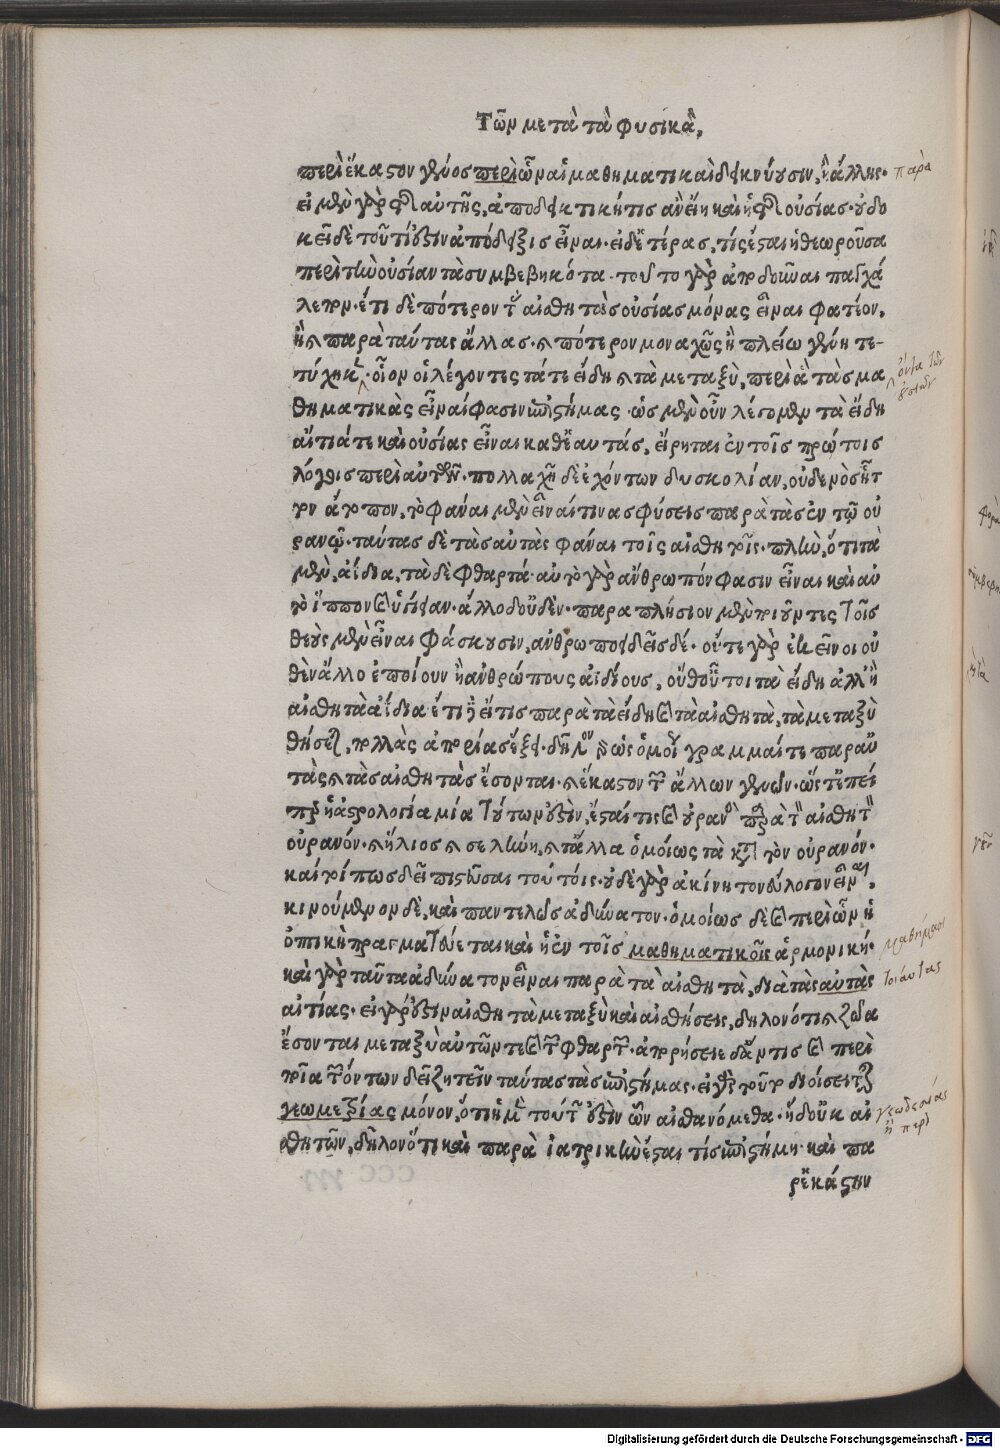 Τῶν μετὰ τὰ φυσικὰ,
περὶ ἕκαστον γένος περὶ ὧν αἱ μαθηματικαὶ δεικνύουσιν, ἢ ἄλλης· παρὰ
εἰ μὲν γὰρ περὶ αὐτῆς, ἀποδεικτικήτις ἂν εἴη καὶ ἡ περὶ οὐσίας· οὐ δο
κεῖ δὲ τοῦ τί ἐστιν ἀπόδειξις εἶναι· εἰ δὲ ἑτέρας, τίς ἔσται ἡ θεωροῦσα
περὶ τὴν οὐσίαν τὰ συμβεβηκότα· τοῦτο γὰρ ἀποδοῦναι παγχά
λεπον· ἔτι δὲ πότερον τὰς αἰσθητὰς οὐσίας μόνας εἶναι φατέον,
ἢ καὶ παρὰ ταύτας ἄλλας· καὶ πότερον μοναχῶς ἢ πλείω γένη τε-
τύχηκε· οἷον οἱ λέγοντες τά τε εἴδη καὶ τὰ μεταξὺ, περὶ ἃ τὰς μα ὄντα τῶν οὐσιῶν
θηματικὰς εἶναί φασιν ἐπιστήμας· ὡς μὲν οὖν λέγομεν τὰ εἴδη
αἴτιά τε καὶ οὐσίας εἶναι καθ' ἑαυτάς, εἴρηται ἐν τοῖς πρώτοις
λόγοις περὶ αὐτῶν· πολλαχῇ δὲ ἐχόντων δυσκολίαν, οὐδενὸς ἧτ
τον ἄτοπον, τὸ φάναι μὲν εἶναί τινας φύσεις παρὰ τὰς ἐν τῷ οὐ
ρανῷ· ταύτας δὲ τὰς αὐτὰς φάναι τοῖς αἰσθητοῖς· πλὴν, ὅτι τὰ
μὲν, ἀΐδια, τὰ δὲ φθαρτά· αὐτὸ γὰρ ἄνθρωπόν φασιν εἶναι καὶ αὐ
τὸ ἵππον καὶ ὑγίειαν· ἄλλο δ' οὐδὲν· παραπλήσιον μὲν ποιοῦντες τοῖς
θεοὺς μὲν εἶναι φάσκουσιν, ἀνθρωποειδεῖς δέ· οὔτε γὰρ ἐκεῖνοι οὐ
θὲν ἄλλο ἐποίουν ἢ ἀνθρώπους ἀϊδίους, οὔθ' οὗτοι τὰ εἴδη ἀλλ' ἢ
αἰσθητὰ ἀΐδια ἔτι ἢ εἴ τις παρὰ τὰ εἴδη καὶ τὰ αἰσθητὰ, τὰ μεταξὺ
θήσει, πολλὰς ἀπορίας ἕξει· δῆλον γὰρ ὡς ὁμοῦ γραμμαί τε παρ' αὐ
τὰς καὶ τὰς αἰσθητὰς ἔσονται· καὶ ἕκαστον τῶν ἄλλων γενῶν· ὥστ' ἐπεί
περ ἡ ἀστρολογία μία τούτων ἐστὶν, ἔσται τις καὶ οὐρανὸς παρὰ τὸν αἰσθητὸν
οὐρανόν· καὶ ἥλιος καὶ σελήνη, καὶ τἄλλα ὁμοίως τὰ κατὰ τὸν οὐρανόν·
καίτοι πως δεῖ πιστεῦσαι τούτοις· οὐδὲ γὰρ ἀκίνητον εὔλογον εἶναι,
κινούμενον δὲ, καὶ παντελῶς ἀδύνατον· ὁμοίως δὲ καὶ περὶ ὧν ἡ
ὀπτικὴ πραγματεύεται καὶ ἡ ἐν τοῖς μαθηματικοῖς ἁρμονική· μαθήμασι
καὶ γὰρ ταῦτα ἀδύνατον εἶναι παρὰ τὰ αἰσθητὰ, διὰ τὰς αὐτὰς τοιαύτας
αἰτίας· εἰ γάρ ἐστιν αἰσθητὰ μεταξὺ καὶ αἰσθήσεις, δηλονότι καὶ ζῷα
ἔσονται μεταξὺ αὐτῶν τε καὶ τῶν φθαρτῶν· ἀπορήσειε δ' ἄν τις καὶ περὶ
ποῖα τῶν ὄντων δεῖ ζητεῖν ταύτας τὰς ἐπιστήμας· εἰ γὰρ τούτῳ διοίσει τῆς
γεωμετρίας μόνον, ὅτι ἡ μὲν τούτων ἐστὶν ὧν αἰσθανόμεθα· ἡ δ' οὐκ αἰ γεωδεσίας ἢ περὶ
σθητῶν, δῆλον ὅτι καὶ παρὰ ἰατρικὴν ἔσται τίς ἐπιστήμη· καὶ πα
ρ' ἑκάστην
Digitalisierung gefördert durch die Deutsche Forschungsgemeinschaft - DFG